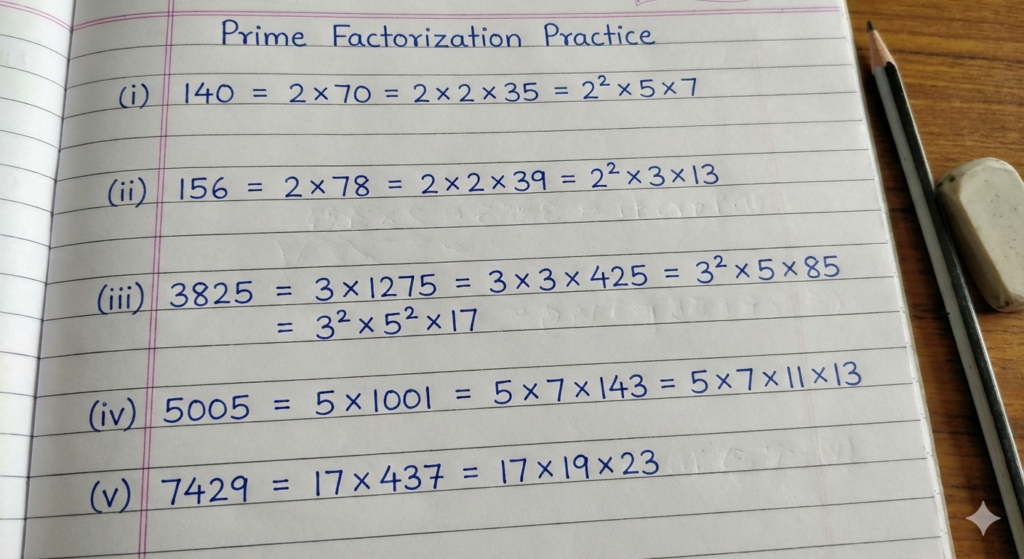 Prime Factorization Practice
(i) 140 = 2×70 = 2×2×35 = 2²×5×7
(ii) 156 = 2×78 = 2×2×39 = 2²×3×13
(iii) 3825 = 3×1275 = 3×3×425 = 3²×5×85
= 3²×5²×17
(iv) 5005 = 5×1001 = 5×7×143 = 5×7×11×13
(v) 7429 = 17×437 = 17×19×23